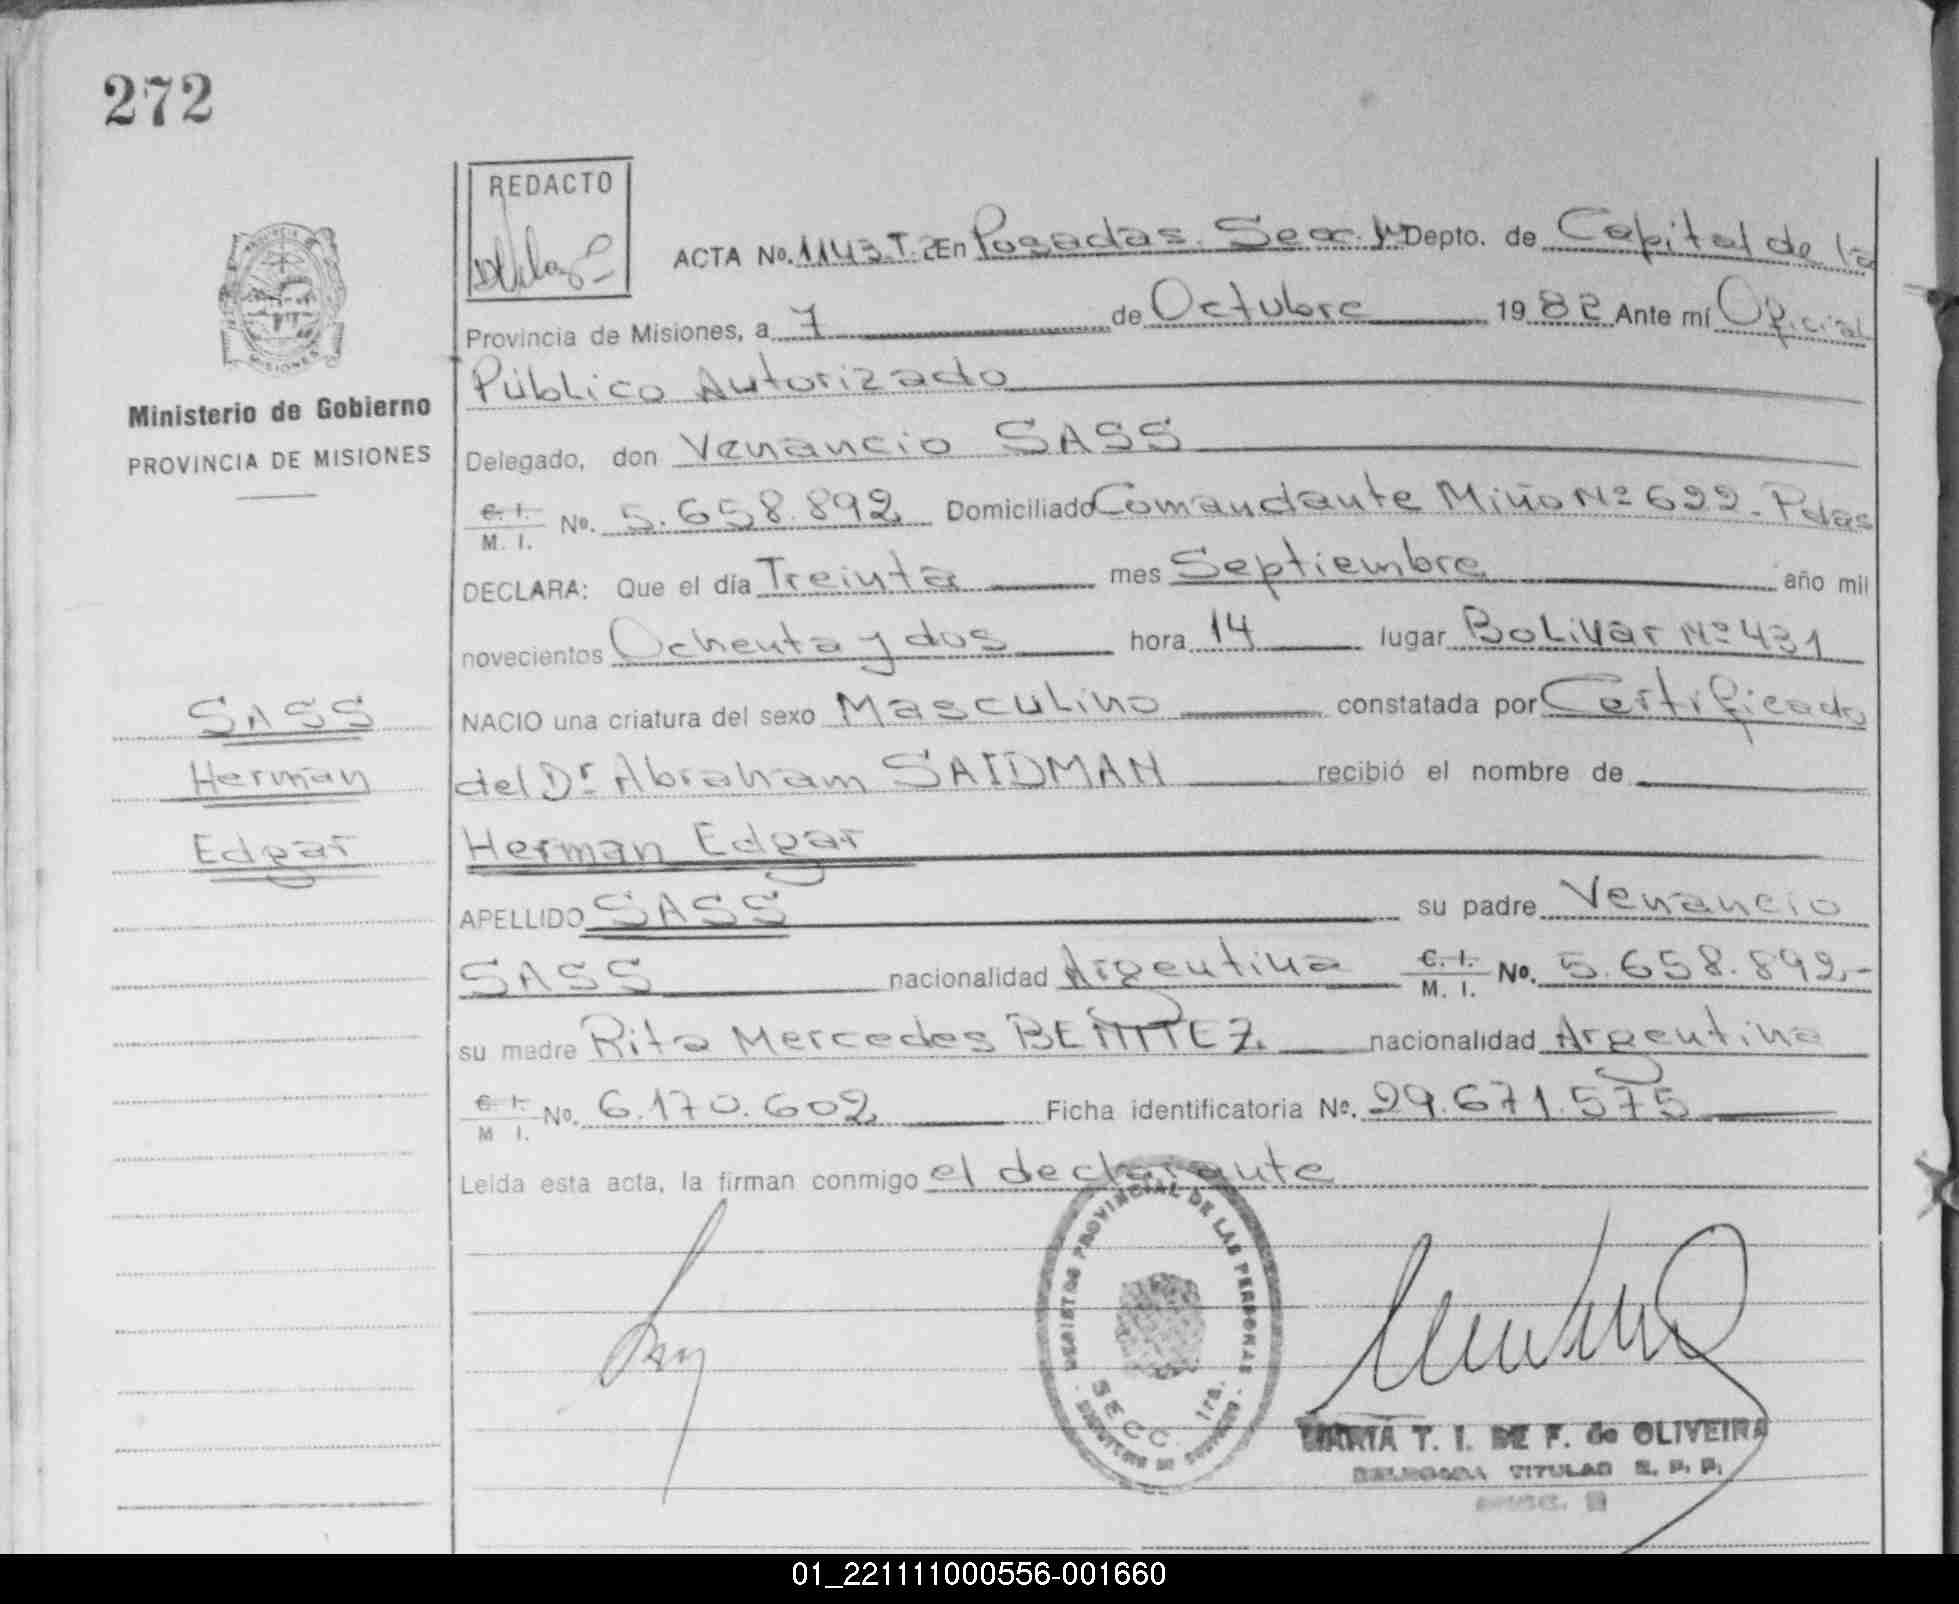 272
REDACTO
ACTA No. 1143 T. 2 En Posadas. Secc. 1ª Depto. de Capital de la
Provincia de Misiones, a 7 de Octubre 1982 Ante mí Oficial
Público Autorizado
Delegado, don Venancio SASS
C. I. M. I. No. 5.658.892 Domiciliado Comandante Miño Nº 622. Pdas
DECLARA: Que el día Treinta mes Septiembre año mil
novecientos Ochenta y dos hora 14 lugar Bolivar Nº 431
NACIO una criatura del sexo Masculino constatada por Certificado
del Dr. Abraham SAIDMAN recibió el nombre de
Herman Edgar
APELLIDO SASS su padre Venancio
SASS nacionalidad Argentina C. I. M. I. No. 5.658.892.-
su madre Rita Mercedes BENITEZ. nacionalidad Argentina
C. I. M I. No. 6.170.602 Ficha identificatoria Nº. 29.671.575
Leída esta acta, la firman conmigo el declarante
Ministerio de Gobierno
PROVINCIA DE MISIONES
SASS
Herman
Edgar
PROVINCIAL DE LAS PERSONAS
SECC. 1ra.
MARIA T. I. DE F. de OLIVEIRA
DELEGADA TITULAR R. P. P.
01_221111000556-001660